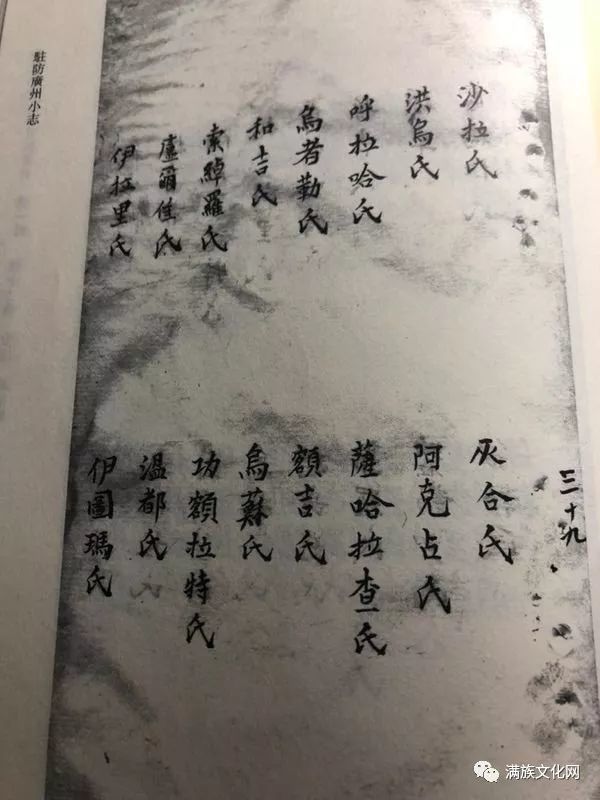 沙拉氏
洪烏氏
呼拉哈氏
烏者勤氏
和吉氏
索綽羅氏
盧爾佳氏
伊拉里氏
灰合氏
阿克占氏
薩哈拉查氏
額吉氏
烏蘇氏
功額拉特氏
溫都氏
伊圖瑪氏
三十九
駐防廣州小志
满族文化网